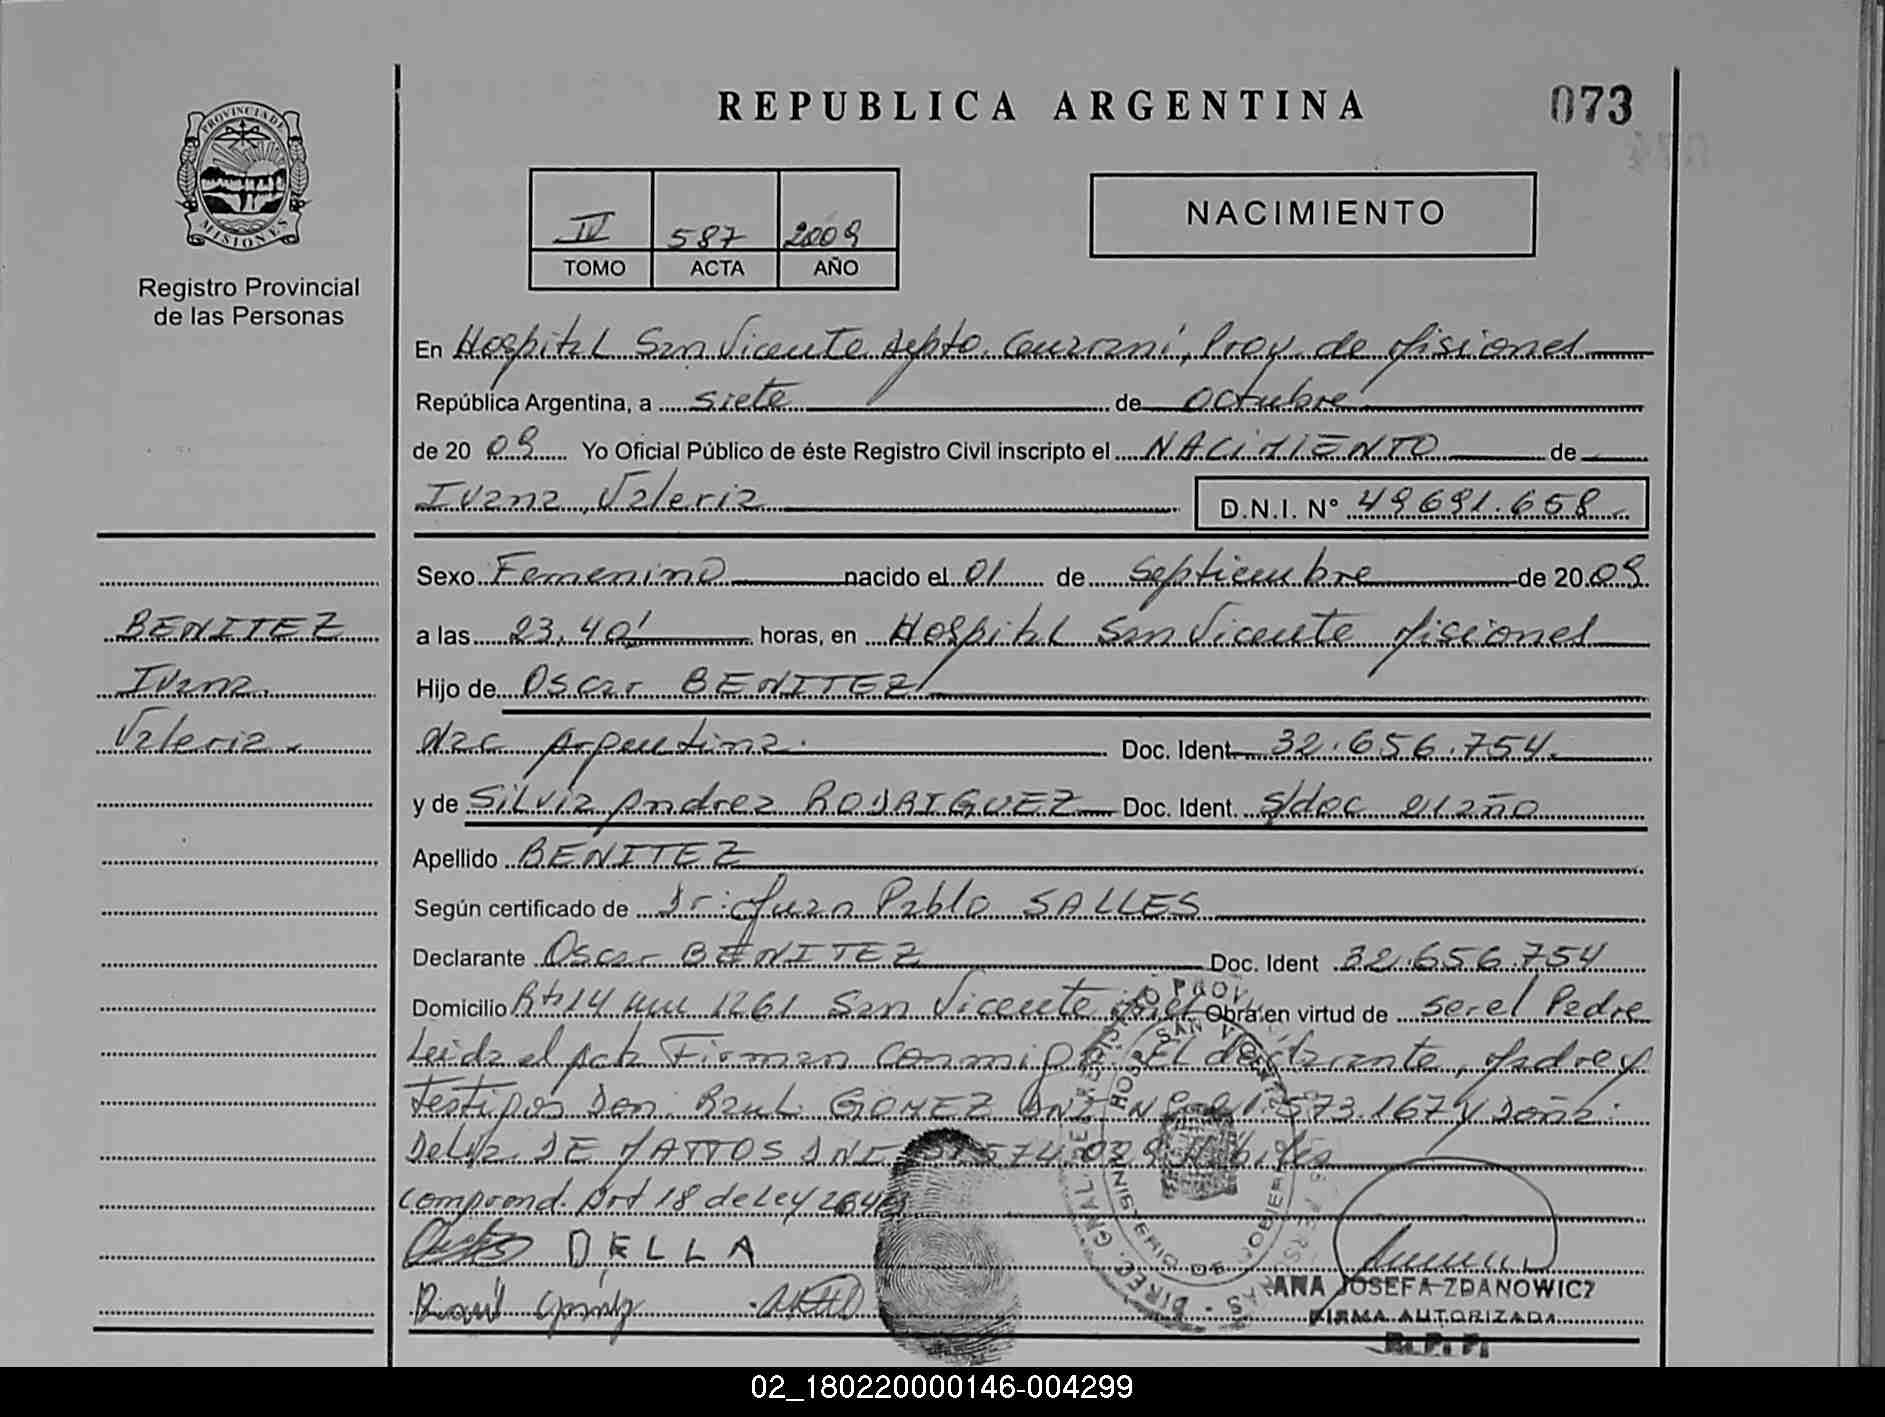 REPUBLICA ARGENTINA
073
PROVINCIA DE
MISIONES
Registro Provincial
de las Personas
IV 587 2009
TOMO ACTA AÑO
NACIMIENTO
En Hospital San Vicente Depto. Guarani, Prov. de Misiones
República Argentina, a siete de octubre
de 2009 Yo Oficial Público de éste Registro Civil inscripto el NACIMIENTO de
Ivana, Valeria D.N.I. Nº 49691.658
Sexo Femenino nacido el 01 de Septiembre de 2009
BENITEZ
Ivana
Valeria
a las 23,40' horas, en Hospital San Vicente Misiones
Hijo de Oscar BENITEZ
Nac Argentina. Doc. Ident. 32.656.754
y de Silvia Andrea RODRIGUEZ Doc. Ident. s/doc
Apellido BENITEZ
Según certificado de Dr: Juan Pablo SALLES
Declarante Oscar BENITEZ Doc. Ident 32.656.754
Domicilio 14 1261 San Vicente Obra en virtud de ser el Padre
Leida el Acta Firman Conmigo El declarante, Madre y
Testigos Don: Raul GOMEZ DNI 573.167 y Doña:
DE MATTOS DNI
Comprend. Art 18 de Ley
DELLA
Raul
HOSP SAN VICENTE
MINISTERIO DE GOBIERNO
ANA JOSEFA ZDANOWICZ
FIRMA AUTORIZADA
R.P.P.
02_180220000146-004299